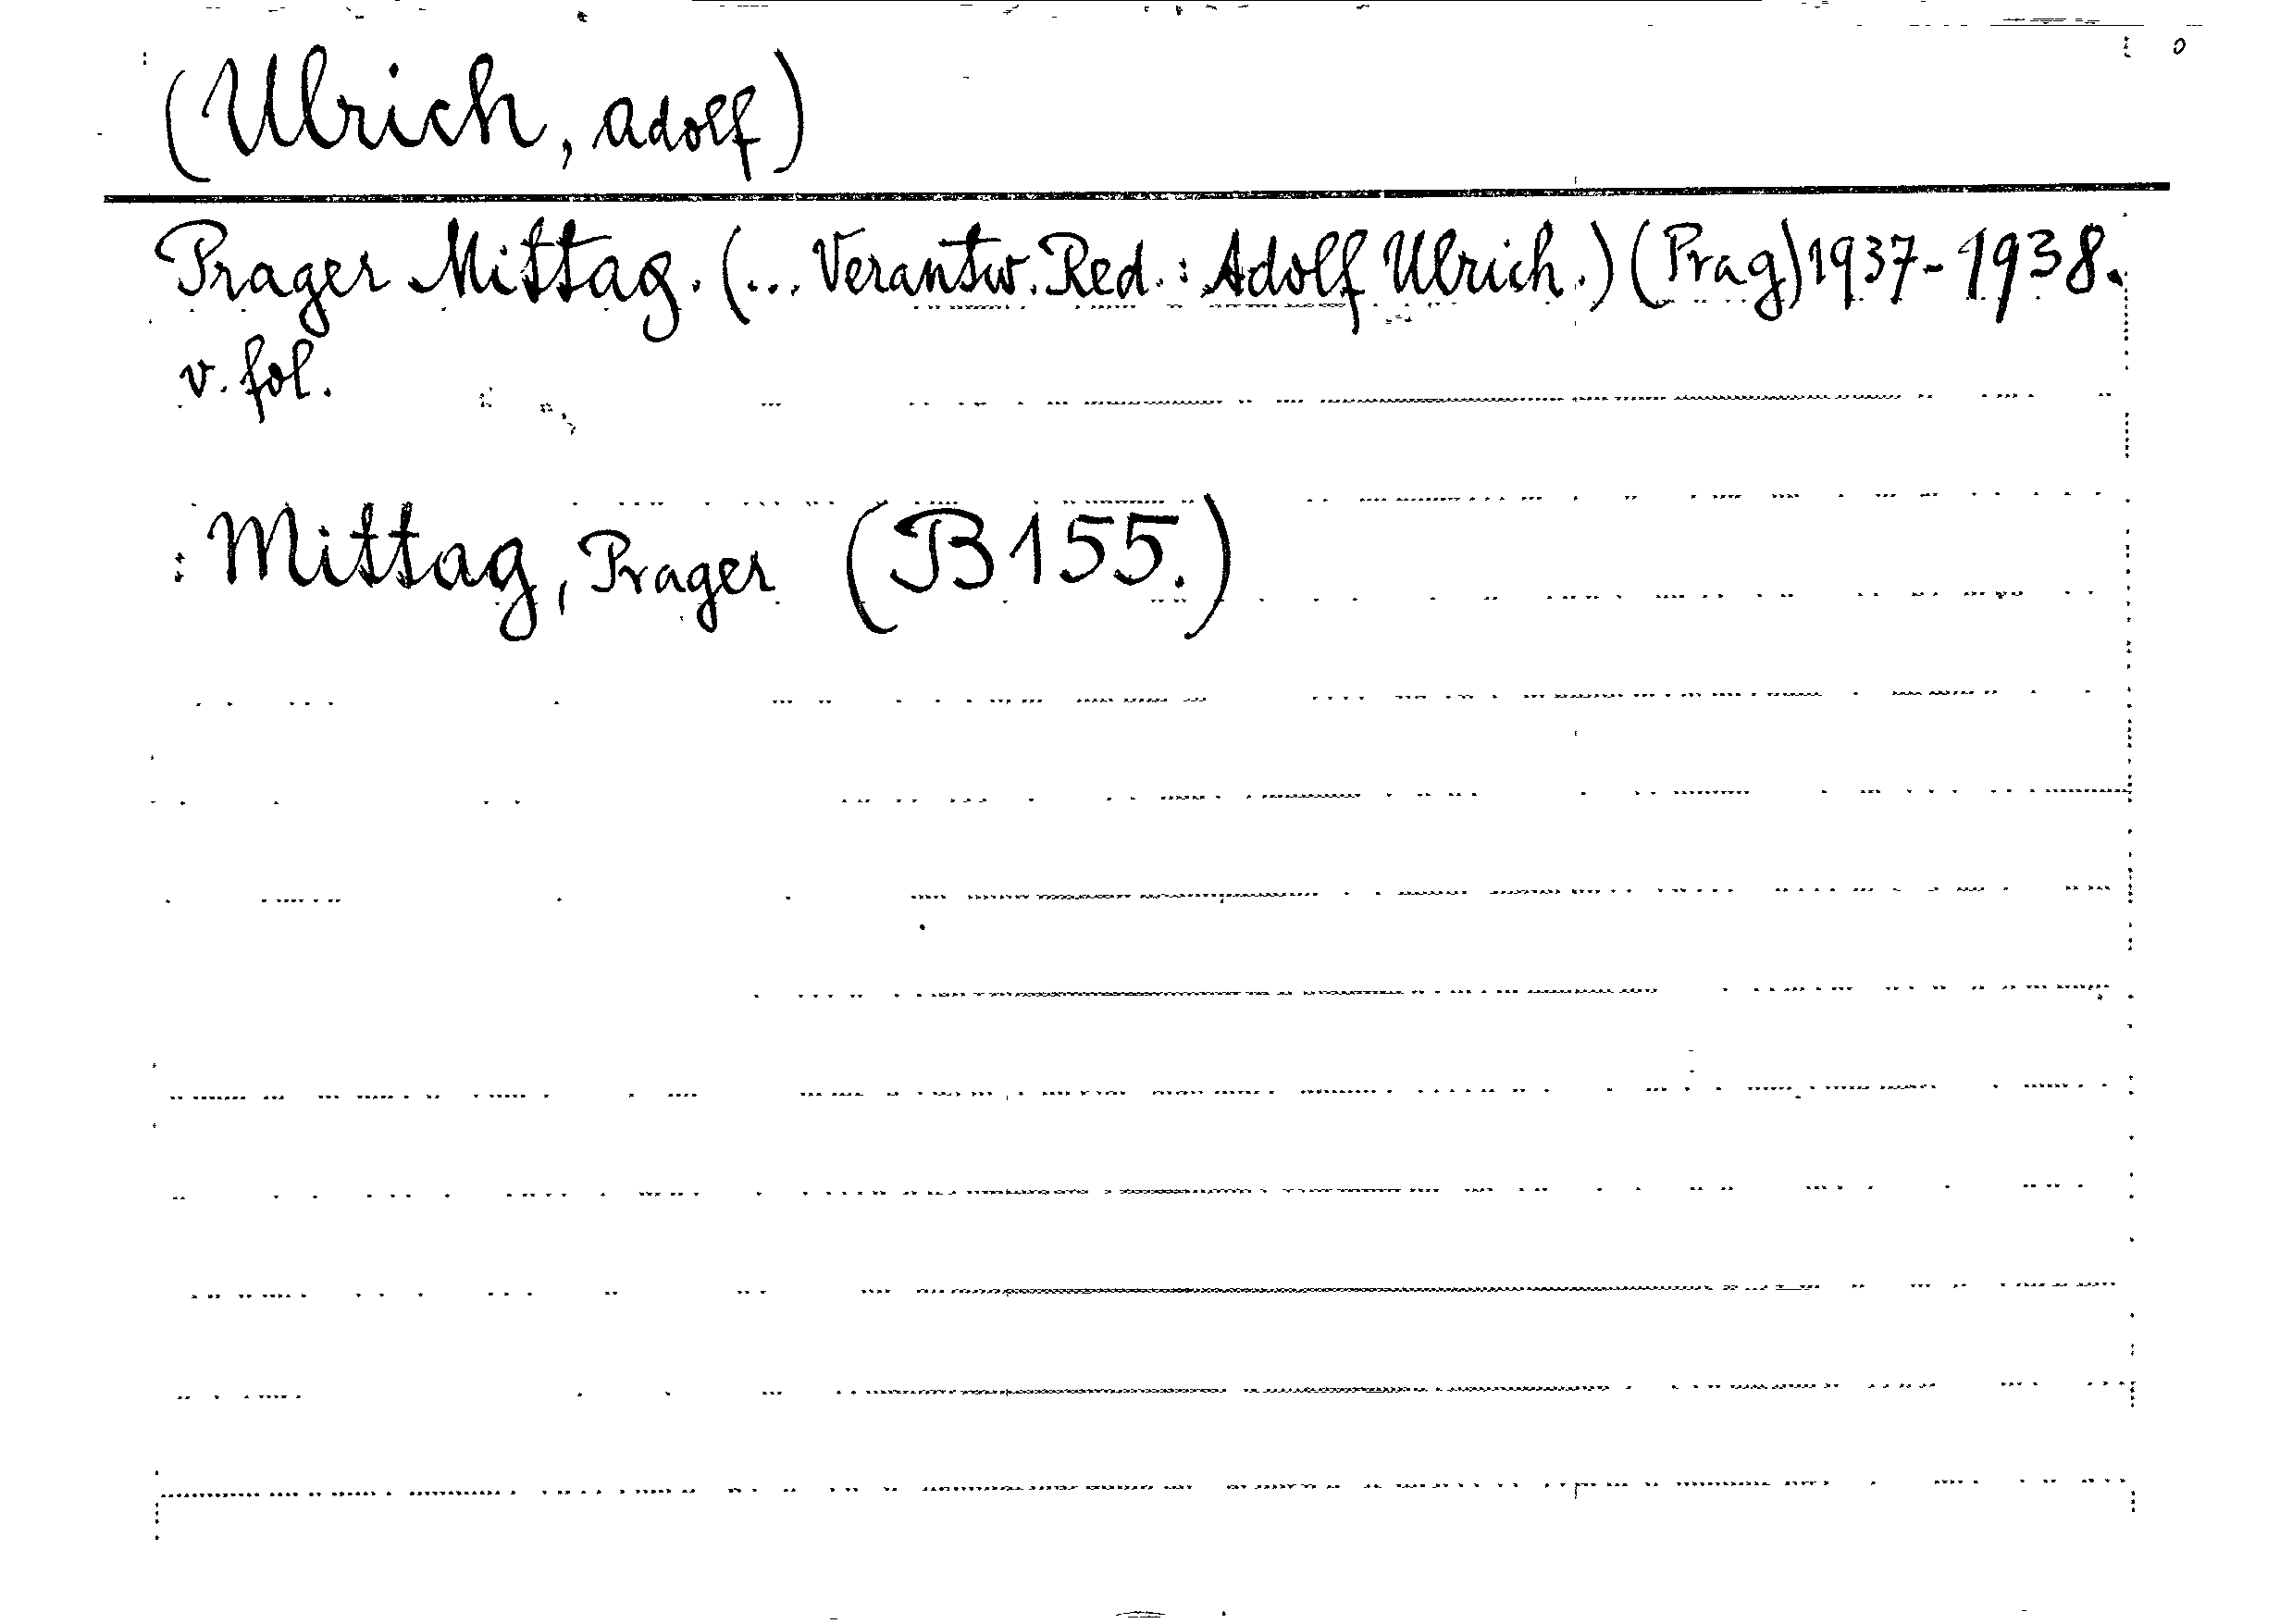 (Ulrich, Adolf)
Prager Mittag. (... Verantw. Red.: Adolf Ulrich.) (Prag) 1937-1938.
v. fol.
: Mittag, Prager (B 155.)